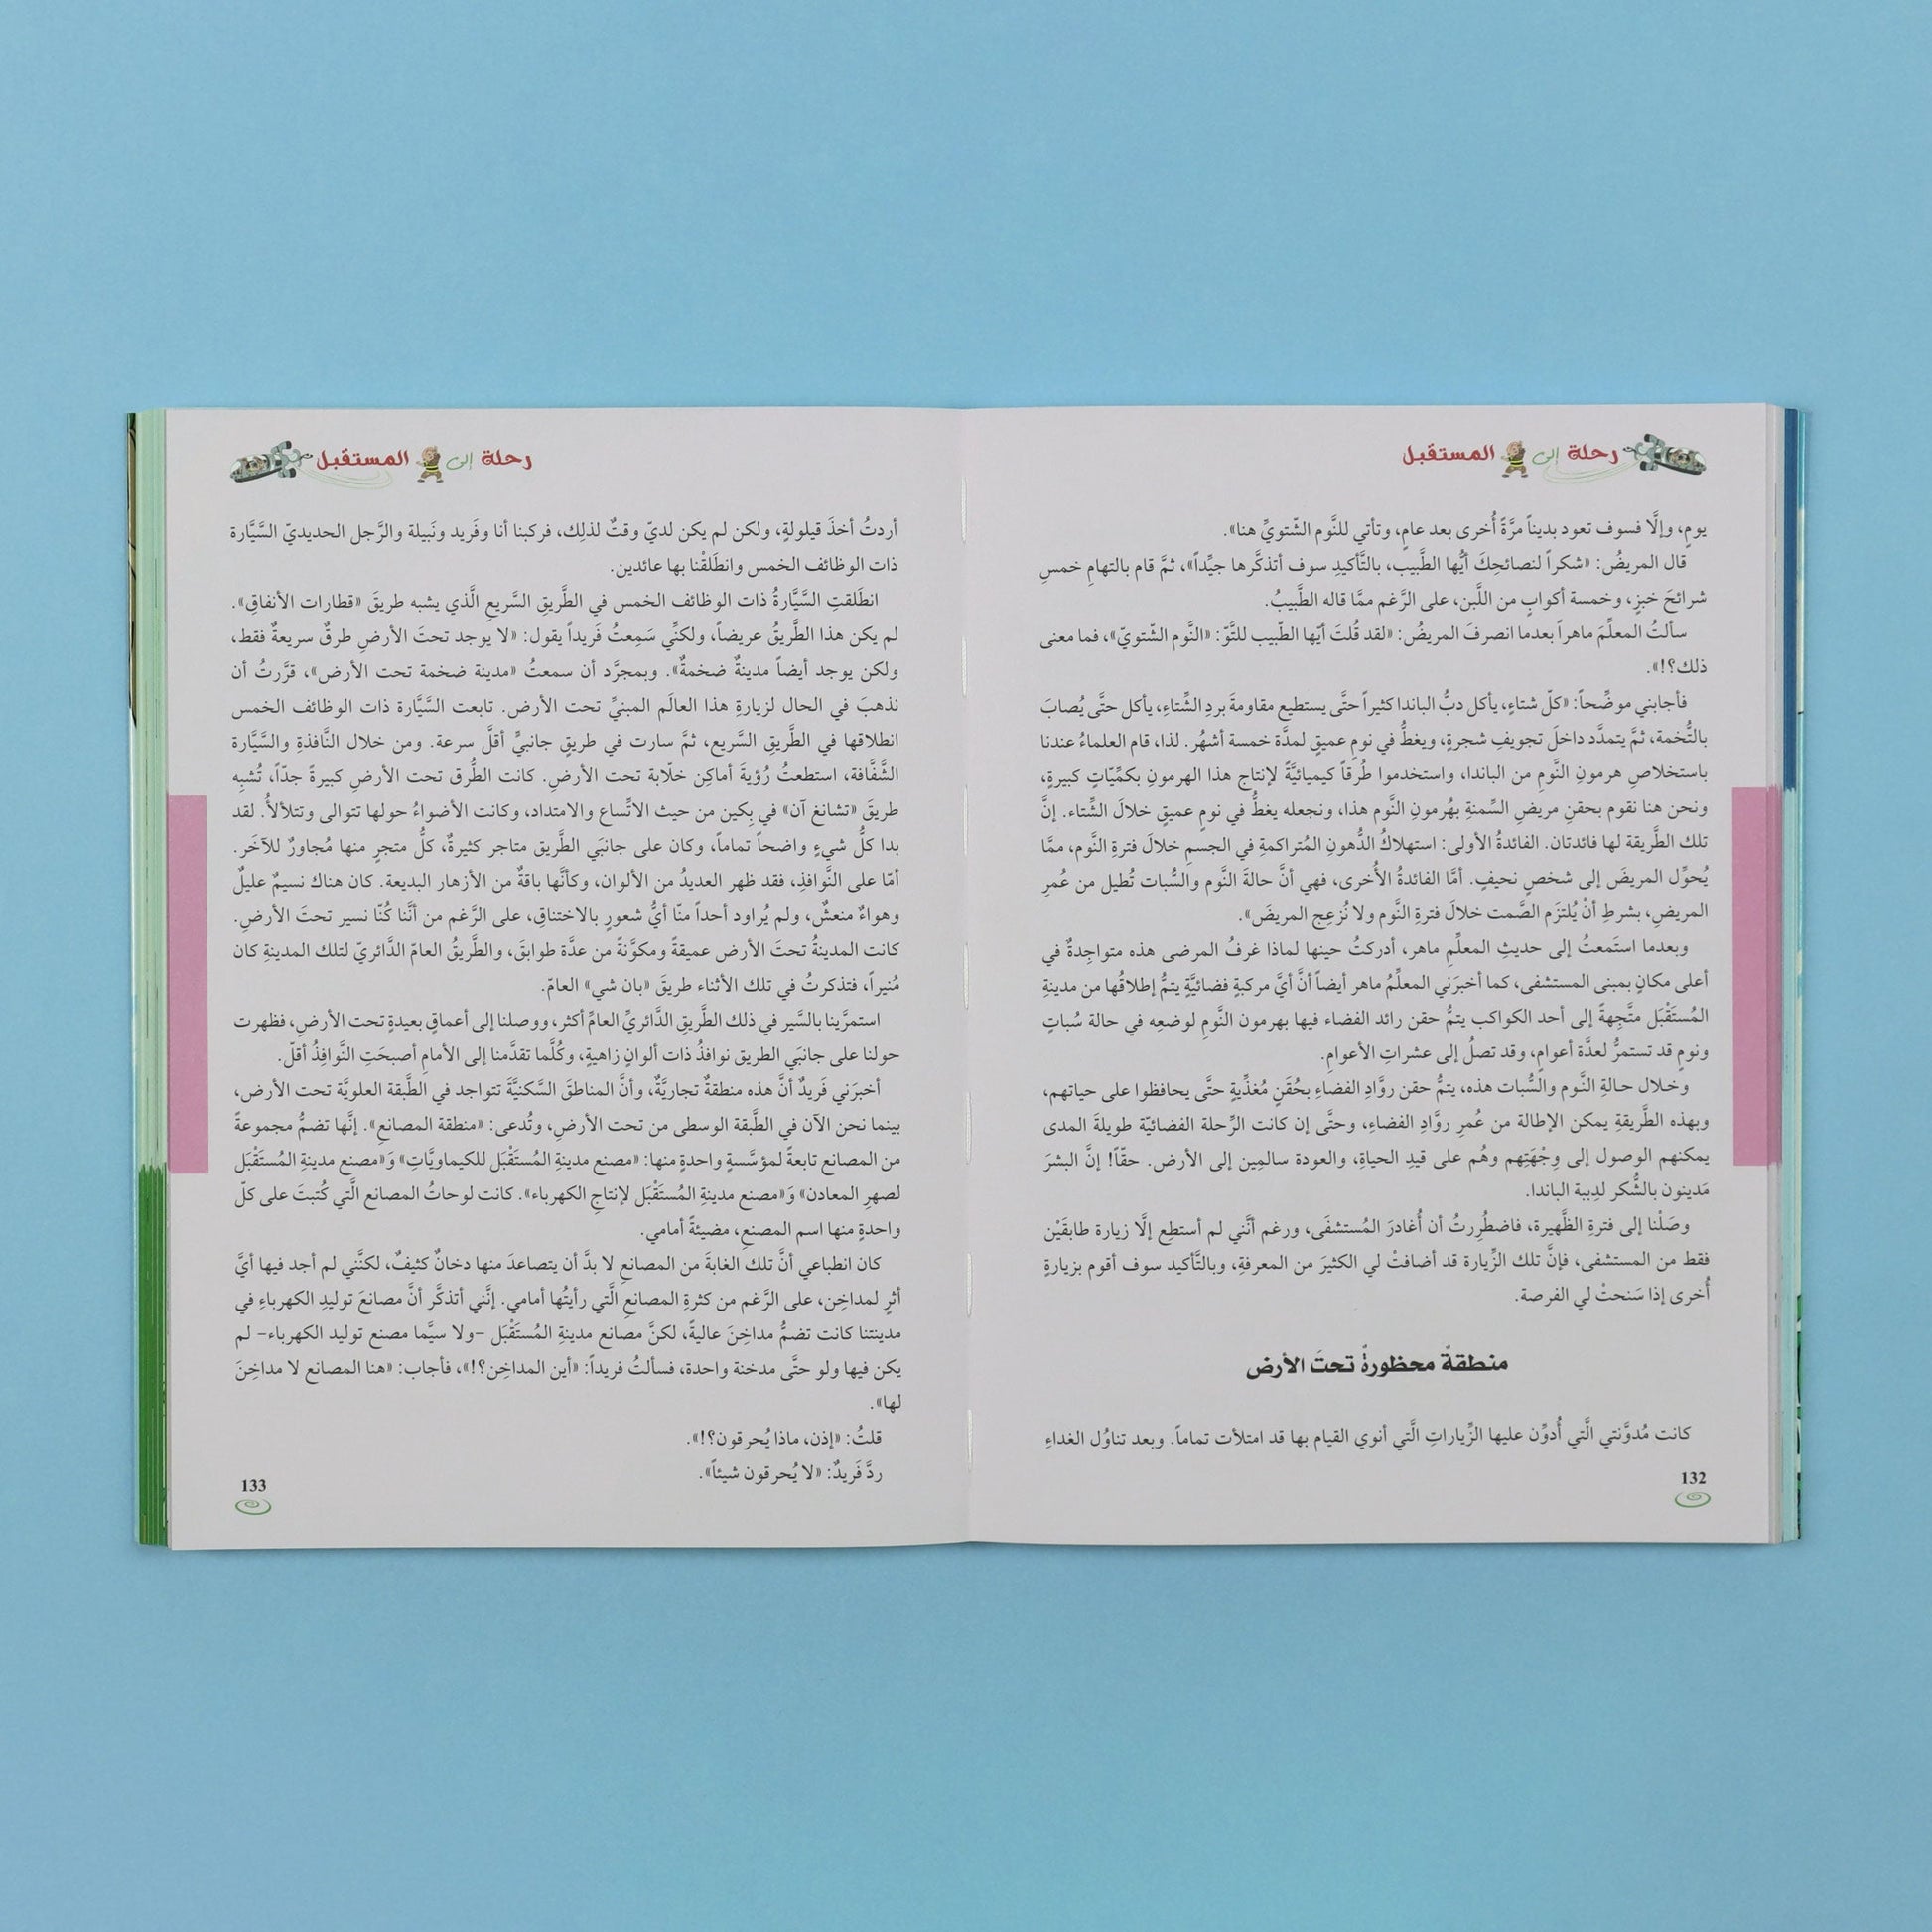 رحلة إلى المستقبل
يومٍ، وإلَّا فسوف تعود بديناً مرَّةً أُخرى بعد عامٍ، وتأتي للنَّوم الشّتويِّ هنا».
قال المريضُ: «شكراً لنصائحِكَ أيُّها الطَّبيب، بالتَّأكيدِ سوف أتذكَّرها جيِّداً»، ثمَّ قام بالتهامِ خمسِ
شرائحَ خبزٍ، وخمسة أكوابٍ من اللَّبن، على الرَّغم ممَّا قاله الطَّبيبُ.
سألتُ المعلِّمَ ماهراً بعدما انصرفَ المريضُ: «لقد قُلتَ أيّها الطّبيب للتَّوّ: «النَّوم الشّتويّ»، فما معنى
ذلك؟!».
فأجابني موضِّحاً: «كلّ شتاءٍ، يأكل دبُّ الباندا كثيراً حتَّى يستطيع مقاومةَ بردِ الشِّتاءِ، يأكل حتَّى يُصابَ
بالتُّخمة، ثمَّ يتمدَّد داخلَ تجويفِ شجرةٍ، ويغطُّ في نومٍ عميقٍ لمدَّة خمسة أشهُر. لذا، قام العلماءُ عندنا
باستخلاصِ هرمونِ النَّومِ من الباندا، واستخدموا طُرقاً كيميائيَّةً لإنتاج هذا الهرمونِ بكمِّيّاتٍ كبيرةٍ،
ونحن هنا نقوم بحقنِ مريضِ السِّمنةِ بهُرمونِ النَّوم هذا، ونجعله يغطُّ في نومٍ عميقٍ خلالَ الشِّتاء. إنَّ
تلك الطَّريقة لها فائدتان. الفائدةُ الأولى: استهلاكُ الدُّهونِ المُتراكمةِ في الجسمِ خلالَ فترةِ النَّوم، ممَّا
يُحوِّل المريضَ إلى شخصٍ نحيفٍ. أمَّا الفائدةُ الأُخرى، فهي أنَّ حالةَ النَّوم والسُّبات تُطيل من عُمرِ
المريضِ، بشرطِ أنْ يُلتزَم الصَّمت خلالَ فترةِ النَّوم ولا نُزعِج المريضَ».
وبعدما استَمعتُ إلى حديثِ المعلِّمِ ماهر، أدركتُ حينها لماذا غرفُ المرضى هذه متواجِدةٌ في
أعلى مكانٍ بمبنى المستشفى، كما أخبرَني المعلِّمُ ماهر أيضاً أنَّ أيَّ مركبةٍ فضائيَّةٍ يتمُّ إطلاقُها من مدينةِ
المُستَقْبَل متَّجِهةً إلى أحد الكواكب يتمُّ حقن رائد الفضاء فيها بهرمون النَّومِ لوضعِه في حالة سُباتٍ
ونومٍ قد تستمرُّ لعدَّة أعوامٍ، وقد تصلُ إلى عشراتِ الأعوامِ.
وخـلال حـالةِ النَّوم والسُّبات هذه، يتمُّ حقن روَّادِ الفضاءِ بحُقَنٍ مُغذِّيةٍ حتَّى يحافظوا على حياتهم،
وبهذه الطَّريقةِ يمكن الإطالة من عُمرِ روَّادِ الفضاءِ، وحتَّى إن كانت الرِّحلة الفضائيّة طويلةَ المدى
يمكنهم الوصول إلى وِجْهَتِهم وهُم على قيدِ الحياةِ، والعودة سالمِين إلى الأرض. حقّاً! إنَّ البشرَ
مَدينون بالشُّكر لدِببة الباندا.
وصَلْنا إلى فترةِ الظَّهيرة، فاضطُرِرتُ أن أُغادرَ المُستشفَى، ورغم أنَّني لم أستطِع إلَّا زيارة طابقَيْن
فقط من المستشفى، فإنَّ تلك الزِّيارة قد أضافتْ لي الكثيرَ من المعرفةِ، وبالتَّأكيد سوف أقوم بزيارةٍ
أُخرى إذا سَنحتْ لي الفرصة.
منطقةٌ محظورةٌ تحتَ الأرض
كانت مُدوَّنتي الَّتي أُدوِّن عليها الزِّياراتِ الَّتي أنوي القيام بها قد امتلأت تماماً. وبعد تناوُل الغداءِ
132
رحلة إلى المستقبل
أردتُ أخذَ قيلولةٍ، ولكن لم يكن لديّ وقتٌ لذلِك، فركبنا أنا وفَريد ونَبيلة والرَّجل الحديديّ السَّيَّارة
ذات الوظائف الخمس وانطَلَقْنا بها عائدين.
انطَلقتِ السَّيَّارةُ ذات الوظائف الخمس في الطَّريق السَّريعِ الَّذي يشبه طريقَ «قطارات الأنفاقِ».
لم يكن هذا الطَّريقُ عريضاً، ولكنِّي سَمِعتُ فَريداً يقول: «لا يوجد تحتَ الأرضِ طرقٌ سريعةٌ فقط،
ولكن يوجد أيضاً مدينةٌ ضخمةٌ». وبمجرَّد أن سمعتُ «مدينة ضخمة تحت الأرض»، قرَّرتُ أن
نذهبَ في الحال لزيارةِ هذا العالَم المبنيِّ تحت الأرض. تابعت السَّيَّارة ذات الوظائف الخمس
انطلاقها في الطَّريق السَّريع، ثمَّ سارت في طريقٍ جانبيٍّ أقلَّ سرعة. ومن خلال النَّافذةِ والسَّيَّارة
الشَّفَّافة، استطعتُ رُؤيةَ أماكِن خلّابة تحت الأرضِ. كانت الطُّرق تحت الأرضِ كبيرةً جدّاً، تُشبِه
طريقَ «تشانغ آن» في بِكين من حيث الاتِّساع والامتداد، وكانت الأضواءُ حولها تتوالى وتتلألأُ. لقد
بدا كلُّ شيءٍ واضحاً تماماً، وكان على جانبَي الطَّريق متاجر كثيرةٌ، كلُّ متجرٍ منها مُجاورٌ للآخَر.
أمّا على النَّوافذِ، فقد ظهر العديدُ من الألوان، وكأنَّها باقةٌ من الأزهار البديعة. كان هناك نسيمٌ عليلٌ
وهواءٌ منعشٌ، ولم يُراود أحداً منّا أيُّ شعورٍ بالاختناقِ، على الرَّغم من أنَّنا كُنّا نسير تحتَ الأرضِ.
كانت المدينةُ تحتَ الأرض عميقةً ومكوَّنةً من عدَّة طوابقَ، والطَّريقُ العامّ الدَّائريّ لتلك المدينةِ كان
مُنيراً، فتذكرتُ في تلك الأثناء طريقَ «بان شي» العامّ.
استمرَّينا بالسَّير في ذلك الطَّريقِ الدَّائريِّ العامِّ أكثر، ووصلنا إلى أعماقٍ بعيدةٍ تحت الأرضِ، فظهرت
حولنا على جانبَي الطريق نوافذُ ذات ألوانٍ زاهيةٍ، وكُلَّما تقدَّمنا إلى الأمامِ أصبحَتِ النَّوافِذُ أقلّ.
أخبرَني فَريدٌ أنَّ هذه منطقةٌ تجاريَّةٌ، وأنَّ المناطقَ السَّكنيَّةَ تتواجد في الطَّبقة العلويَّة تحت الأرض،
بينما نحن الآن في الطَّبقة الوسطى من تحت الأرضِ، وتُدعى: «منطقة المصانع». إنَّها تضمُّ مجموعةً
من المصانع تابعةً لمؤسَّسةٍ واحدةٍ منها: «مصنع مدينةِ المُستَقْبَل للكيماويَّاتِ» وَ«مصنع مدينةِ المُستَقْبَل
لصهرِ المعادن» وَ«مصنع مدينةِ المُستَقْبَل لإنتاجِ الكهرباء». كانت لوحاتُ المصانع الَّتي كُتبتَ على كلّ
واحدةٍ منها اسم المصنع، مضيئةً أمامي.
كان انطباعي أنَّ تلك الغابةَ من المصانعِ لا بدَّ أن يتصاعدَ منها دخانٌ كثيفٌ، لكنَّني لم أجد فيها أيَّ
أثرٍ لمداخِن، على الرَّغم من كثرةِ المصانعِ الَّتي رأيتُها أمامي. إنَّني أتذكَّر أنَّ مصانعَ توليدِ الكهرباءِ في
مدينتنا كانت تضمُّ مداخِنَ عاليةً، لكنَّ مصانع مدينةِ المُستَقْبَل -ولا سيَّما مصنع توليد الكهرباء- لم
يكن فيها ولو حتَّى مدخنة واحدة، فسألتُ فريداً: «أين المداخِن؟!»، فأجاب: «هنا المصانع لا مداخِنَ
لها».
قلتُ: «إذن، ماذا يُحرقون؟!».
ردَّ فَريدٌ: «لا يُحرقون شيئاً».
133